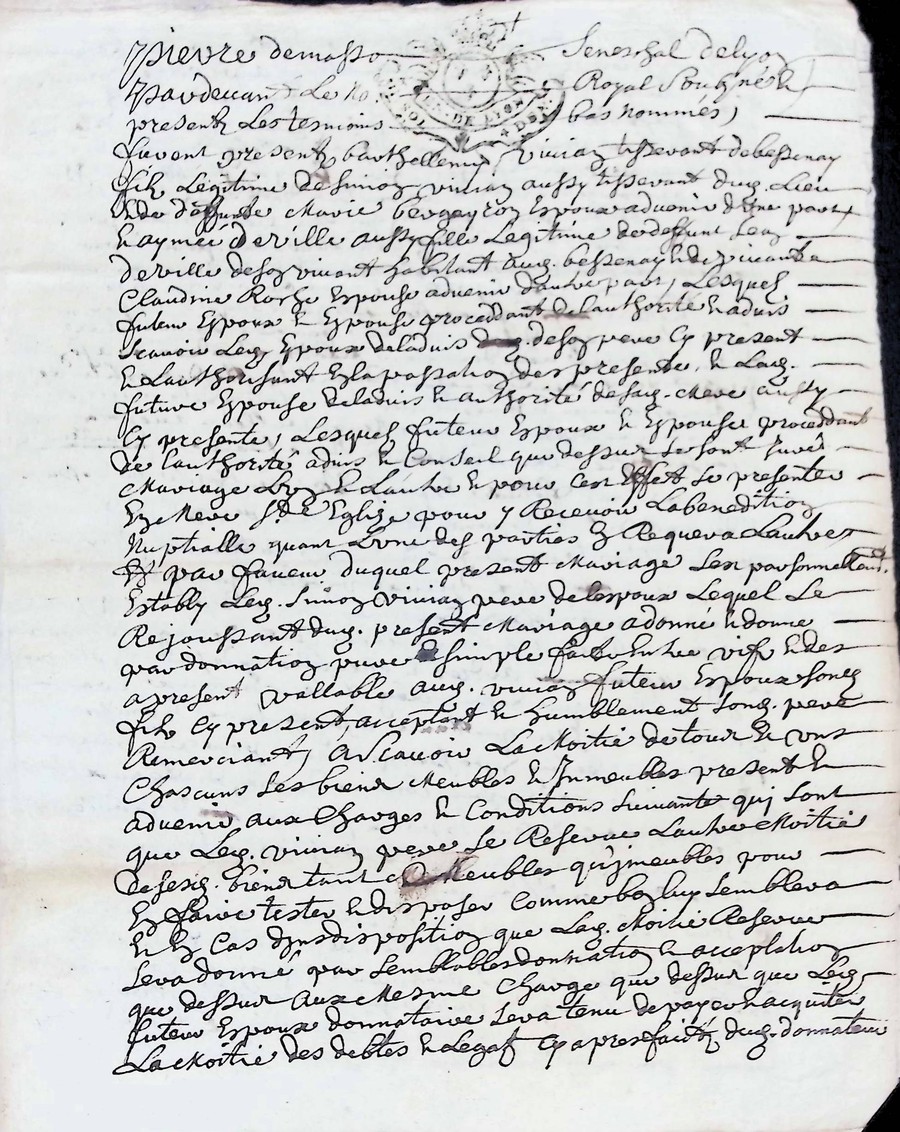 Pierre demasso Seneschal delyon
Pardevant Le No Royal Soubsigné &
presents Les tesmoins bas nommés,
GEN. DE LYON
furent presents barthellemy vivian tisserant debessenay
fils Legitime desimon vivian aussy tisserant dud. Lieu
& de deffunte Marie bergeyron Espoux advenir d'une part
& aymée deville aussy fille Legitime de deffunt Jean
deville deson vivant habitant aud. bessenay & de vivante
Claudine Roche Espouse advenir d'autre part, Lesquels
futeur Espoux & Espouse proceddant de l'authorité & advis
scavoir Led. Epoux deladvis dud. deson pere Cy present
& Lauthorisant En la passation des presentes, & Lad.
future Espouse deladvis & authorité desad. Mere aussy
Cy presente, Lesquels futeur Espoux & Espouse proceddant
de l'authorité advis & Conseil que dessus se sont Jurés
Mariage Lun & Lautre & pour cest Effet se presenter
En Mere Ste Eglize pour y Recevoir Labenedition
Nuptialle quant Lune des parties En Requera Lautre
Et par faveur duquel present Mariage sest personnellement
Estably Led. Simon vivian pere delespoux Lequel se
Rejouissant dud. present Mariage a donné & donne
par donnation pure & simple faite Entre vifs & des
apresent vallable aud. vivian futeur Espoux sond.
fils Cy present, acceptant & humblement sond. pere
Remerciant, a Scavoir La Moitié de tous & uns
Chascuns ses biens Meubles & Immeubles present &
advenir aux Charges & Conditions suivante qui sont
que Led. vivian pere se Reserve Lautre Moitié
desesd. biens tant Meubles qu'jmeubles pour
En faire tester & disposer Comme bon luy semblera
& En Cas d'jndisposition que Lad. Moitié Reservée
sera donné par semblables donnation & acceptation
que dessus aux Mesme Charge que dessus que Led.
futeur Espoux donnataire sera tenu de payer & acquiter
La Moitié des debtes & Legats Cy apres faits dud. donnateur